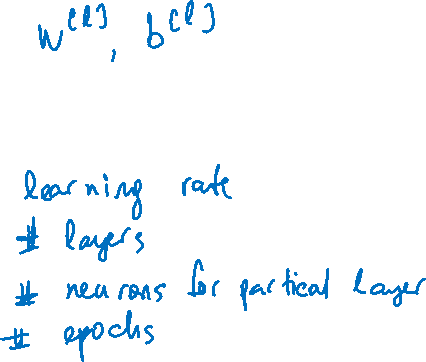 W^[l], b^[l]
learning rate
# layers
# neurons for partical layer
# epochs